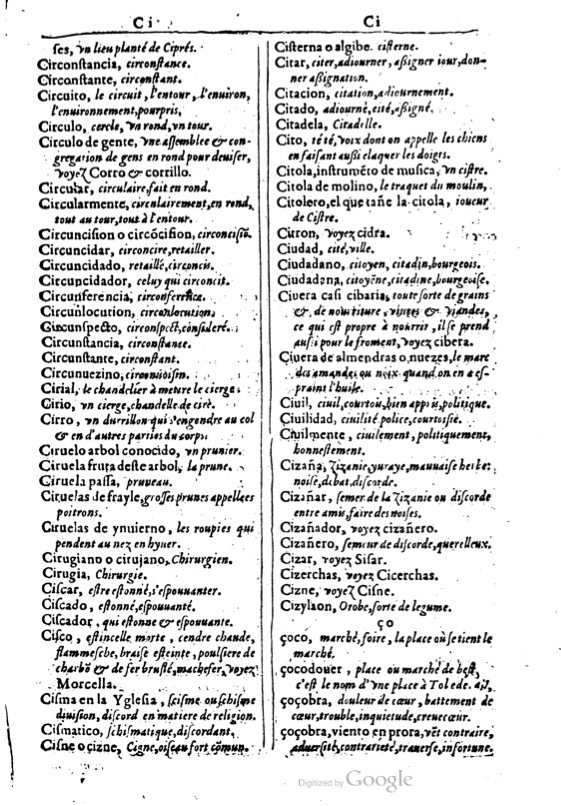 Ci
ses, vn lieu planté de Ciprés.
Circonstancia, circonstance.
Circonstante, circonstant.
Circuito, le circuit, l'entour, l'enuiron,
l'enuironnement, pourpris.
Circulo, cercle, vn rond, vn tour.
Circulo de gente, vne assemblee & con-
gregation de gens en rond pour deuiser,
voyez Corro & corrillo.
Circular, circulaire, fait en rond.
Circularmente, circulairement, en rond,
tout au tour, tout à l'entour.
Circuncision o circõcision, circoncisiõ.
Circuncidar, circoncire, retailler.
Circuncidado, retaillé, circoncis.
Circuncidador, celuy qui circoncit.
Circunferencia, circonference.
Circunlocution, circonlocution.
Circunspecto, circonspect, consideré.
Circunstancia, circonstance.
Circunstante, circonstant.
Circunuezino, circonuoisin.
Cirial, le chandelier à mettre le cierge.
Cirio, vn cierge, chandelle de cire.
Cirro, vn durrillon qui s'engendre au col
& en d'autres parties du corps.
Ciruelo arbol conocido, vn prunier.
Ciruela fruta deste arbol, la prune.
Ciruela passa, pruneau.
Ciruelas de frayle, grosses prunes appellees
poitrons.
Ciruelas de ynuierno, les roupies qui
pendent au nez en hyuer.
Cirugiano o cirujano, Chirurgien.
Cirugia, Chirurgie.
Ciscar, estre estonné, s'espouuanter.
Ciscado, estonné, espouuanté.
Ciscador, qui estonne & espouuante.
Cisco, estincelle morte, cendre chaude,
flammesche, braise esteinte, poulsiere de
charbõ & de fer bruslé, machefer, voyez
Morcella.
Cisma en la Yglesia, scisme ou schisme
diuision, discord en matiere de religion.
Cismatico, schismatique, discordant.
Cisne o çizne, Cigne, oiseau fort cõmun.
Ci
Cisterna o algibe. cisterne.
Citar, citer, adiourner, assigner iour, don-
ner assignation.
Citacion, citation, adiournement.
Citado, adiourné, cité, assigné.
Citadela, Citadelle.
Cito, té té, voix dont on appelle les chiens
en faisant aussi claquer les doigts.
Citola, instrumẽto de musica, vn cistre.
Citola de molino, le traquet du moulin,
Citolero, el que tañe la citola, ioueur
de Cistre.
Citron, voyez cidra.
Ciudad, cité, ville.
Ciudadano, citoyen, citadin, bourgeois.
Ciudadana, citoyẽne, citadine, bourgeoise.
Ciuera casi cibaria, toute sorte de grains
& de nourriture, viures & viandes,
ce qui est propre à nourrir, il se prend
aussi pour le froment, voyez cibera.
Ciuera de almendras o nuezes, le marc
des amandes ou noix quand on en a es-
praint l'huile.
Ciuil, ciuil, courtou, bien appris, politique.
Ciuilidad, ciuilité police, courtoisie.
Ciuilmente, ciuilement, politiquement,
honnestement.
Cizaña, Zizanie, yuraye, mauuaise herbe:
noise, debat, discorde.
Cizañar, semer de la Zizanie ou discorde
entre amis, faire des noises.
Cizañador, voyez cizañero.
Cizañero, semeur de discorde, querelleux.
Cizar, voyez Sisar.
Cizerchas, voyez Cicerchas.
Cizne, voyez Cisne.
Cizylaon, Orobe, sorte de legume.
ço
çoco, marché, foire, la place où se tient le
marché.
çocodouer, place ou marché de bestes,
c'est le nom d'vne place à Tolede.
çoçobra, douleur de cœur, battement de
cœur, trouble, inquietude, creuecœur.
çoçobra, viento en prora, vẽt contraire,
aduersité, contrarieté, trauerse, infortune.
Digitized by Google